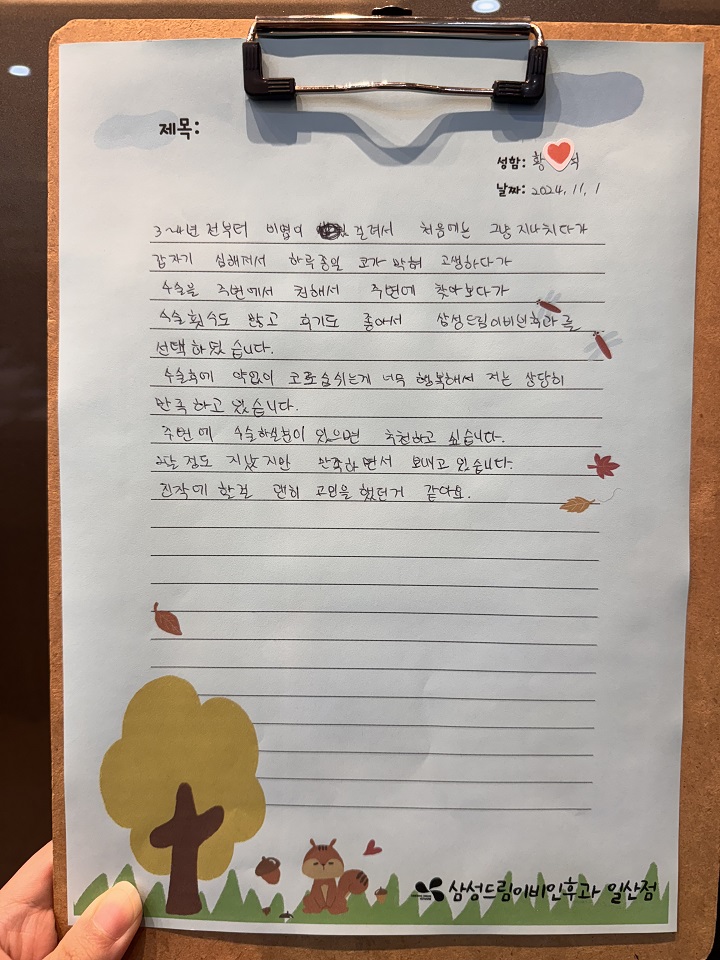 제목:
성함: 황 식
날짜: 2024. 11. 1
3~4년 전부터 비염이 걸려서 처음에는 그냥 지나치다가
갑자기 심해져서 하루종일 코가 막혀 고생하다가
수술을 주변에서 권해서 주변에 찾아보다가
수술횟수도 많고 후기도 좋아서 삼성드림이비인후과를
선택하였습니다.
수술후에 약없이 코로 숨쉬는게 너무 행복해서 저는 상당히
만족하고 있습니다.
주변에 수술하실분이 있으면 추천하고 싶습니다.
2달 정도 지났지만 만족하면서 보내고 있습니다.
진작에 할걸 괜히 고민을 했던거 같아요.
삼성드림이비인후과 일산점